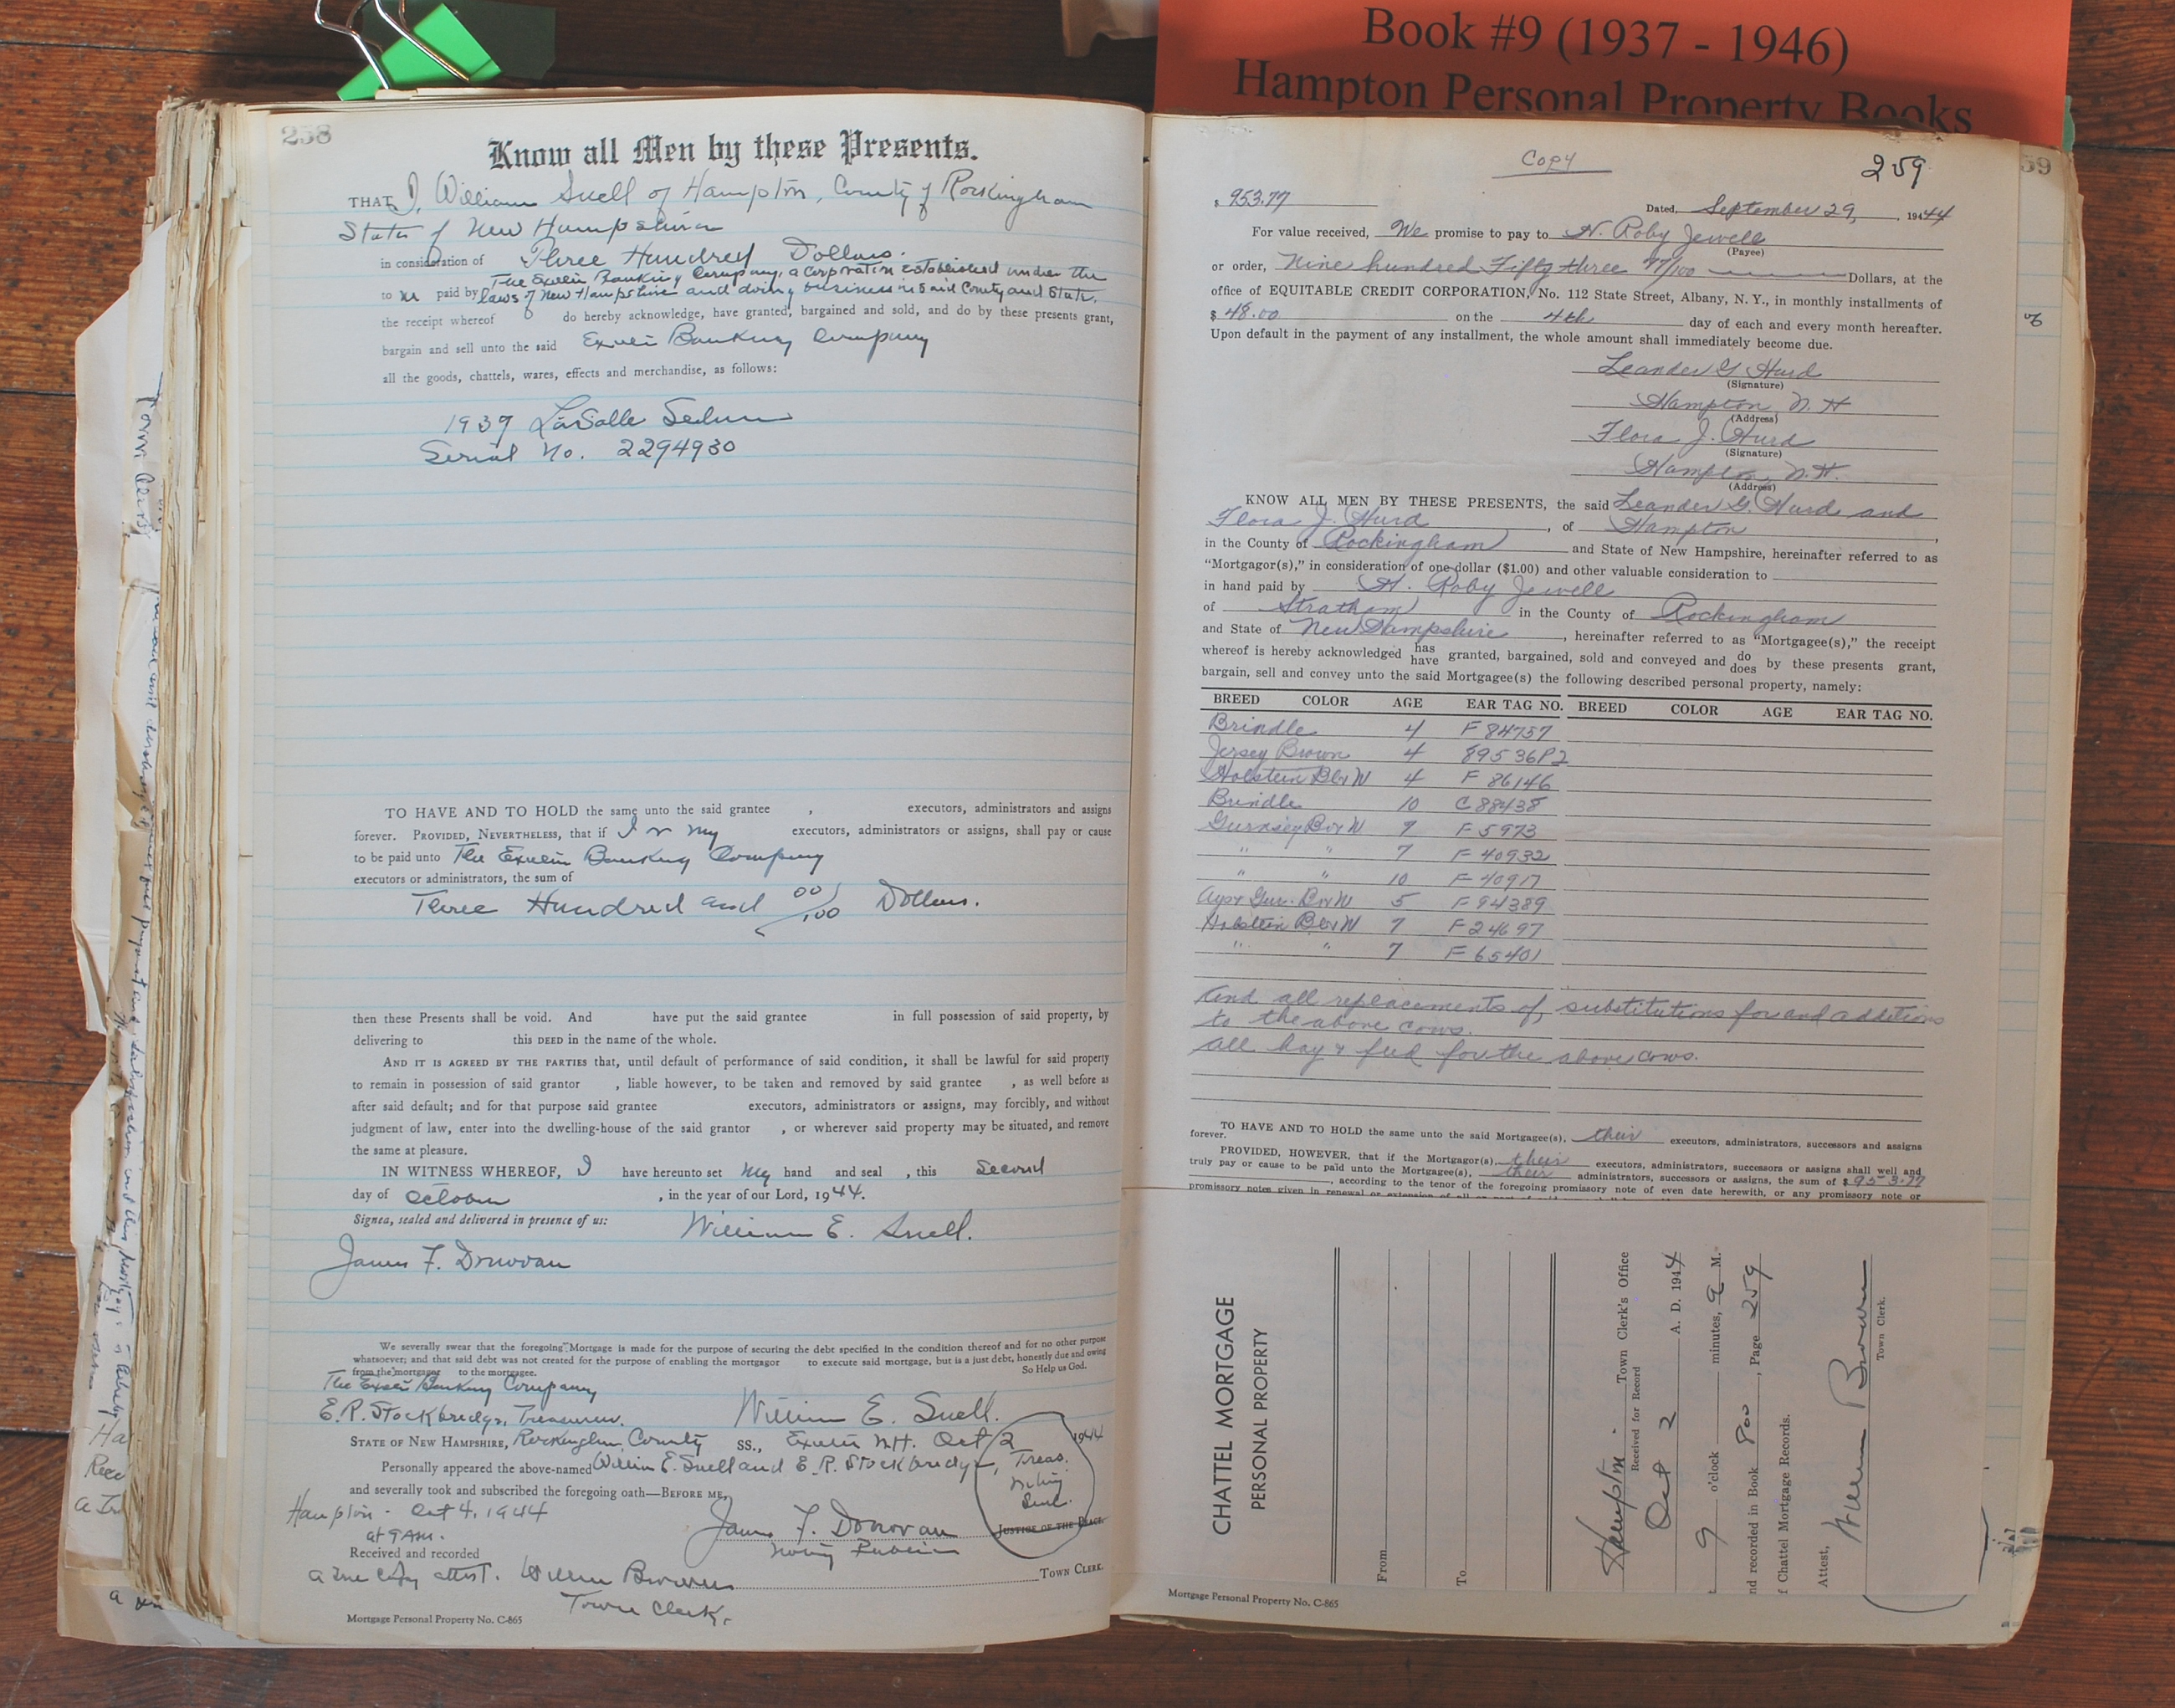 Book #9 (1937 - 1946)
Hampton Personal Property Books
258
Know all Men by these Presents.
THAT I, William Snell of Hampton, County of Rockingham
State of New Hampshire
in consideration of Three Hundred Dollars.
to me paid by The Exeter Banking Company, a corporation established under the
laws of New Hampshire and doing business in said County and State.
the receipt whereof do hereby acknowledge, have granted, bargained and sold, and do by these presents grant,
bargain and sell unto the said Exeter Banking Company
all the goods, chattels, wares, effects and merchandise, as follows:
1937 LaSalle Sedan
Serial No. 2294930
TO HAVE AND TO HOLD the same unto the said grantee , executors, administrators and assigns
forever. PROVIDED, NEVERTHELESS, that if I or my executors, administrators or assigns, shall pay or cause
to be paid unto The Exeter Banking Company
executors or administrators, the sum of
Three Hundred and 00/100 Dollars.
then these Presents shall be void. And have put the said grantee in full possession of said property, by
delivering to this DEED in the name of the whole.
AND IT IS AGREED BY THE PARTIES that, until default of performance of said condition, it shall be lawful for said property
to remain in possession of said grantor , liable however, to be taken and removed by said grantee , as well before as
after said default; and for that purpose said grantee executors, administrators or assigns, may forcibly, and without
judgment of law, enter into the dwelling-house of the said grantor , or wherever said property may be situated, and remove
the same at pleasure.
IN WITNESS WHEREOF, I have hereunto set my hand and seal , this second
day of October , in the year of our Lord, 1944.
Signed, sealed and delivered in presence of us:
William E. Snell.
James F. Donovan
We severally swear that the foregoing Mortgage is made for the purpose of securing the debt specified in the condition thereof and for no other purpose
whatsoever; and that said debt was not created for the purpose of enabling the mortgagor to execute said mortgage, but is a just debt, honestly due and owing
from the mortgagor to the mortgagee. So Help us God.
The Exeter Banking Company
E.P. Stockbridge, Treasurer. William E. Snell.
STATE OF NEW HAMPSHIRE, Rockingham County SS., Exeter N.H. Oct 2 1944
Personally appeared the above-named William E. Snell and E.P. Stockbridge, Treas.
and severally took and subscribed the foregoing oath—BEFORE ME,
Hampton - Oct 4, 1944
at 9 AM.
James F. Donovan JUSTICE OF THE PEACE.
Notary Public
Received and recorded
a true copy attest. William Brown TOWN CLERK.
Town Clerk.
Mortgage Personal Property No. C-865
59
COPY
259
$ 953.77
Dated, September 29, 1944
For value received, We promise to pay to N. Roby Jewell
(Payee)
or order, Nine hundred Fifty three 77/100 Dollars, at the
office of EQUITABLE CREDIT CORPORATION, No. 112 State Street, Albany, N. Y., in monthly installments of
$ 48.00 on the 4th day of each and every month hereafter.
Upon default in the payment of any installment, the whole amount shall immediately become due.
Leander G. Hurd
(Signature)
Hampton N. H
(Address)
Flora J. Hurd
(Signature)
Hampton, N. H.
(Address)
KNOW ALL MEN BY THESE PRESENTS, the said Leander G. Hurd and
Flora J. Hurd , of Hampton ,
in the County of Rockingham and State of New Hampshire, hereinafter referred to as
“Mortgagor(s),” in consideration of one dollar ($1.00) and other valuable consideration to
in hand paid by N. Roby Jewell
of Stratham in the County of Rockingham
and State of New Hampshire , hereinafter referred to as “Mortgagee(s),” the receipt
whereof is hereby acknowledged has have granted, bargained, sold and conveyed and do does by these presents grant,
bargain, sell and convey unto the said Mortgagee(s) the following described personal property, namely:
BREED COLOR AGE EAR TAG NO. BREED COLOR AGE EAR TAG NO.
Brindle 4 F 84757
Jersey Brown 4 89536P2
Holstein B&W 4 F 86146
Brindle 10 C 88438
Gurnsey B&W 9 F 5973
" " 7 F 40932
" " 10 F 40917
Ayr & Gur. B&W 5 F 94389
Holstein B&W 7 F 24697
" " 7 F 65401
And all replacements of, substitutions for and additions
to the above cows.
All hay & feed for the above cows.
TO HAVE AND TO HOLD the same unto the said Mortgagee(s), their executors, administrators, successors and assigns
forever.
PROVIDED, HOWEVER, that if the Mortgagor(s), their executors, administrators, successors or assigns shall well and
truly pay or cause to be paid unto the Mortgagee(s), their administrators, successors or assigns, the sum of $ 953.77
, according to the tenor of the foregoing promissory note of even date herewith, or any promissory note or
promissory notes given in renewal or extension of all or part of
CHATTEL MORTGAGE
PERSONAL PROPERTY
From
To
Hampton Town Clerk's Office
Received for Record
Oct 2 A. D. 1944
9 o'clock minutes, a M.
nd recorded in Book 800, Page 259
f Chattel Mortgage Records.
Attest, William Brown
Town Clerk.
Mortgage Personal Property No. C-865